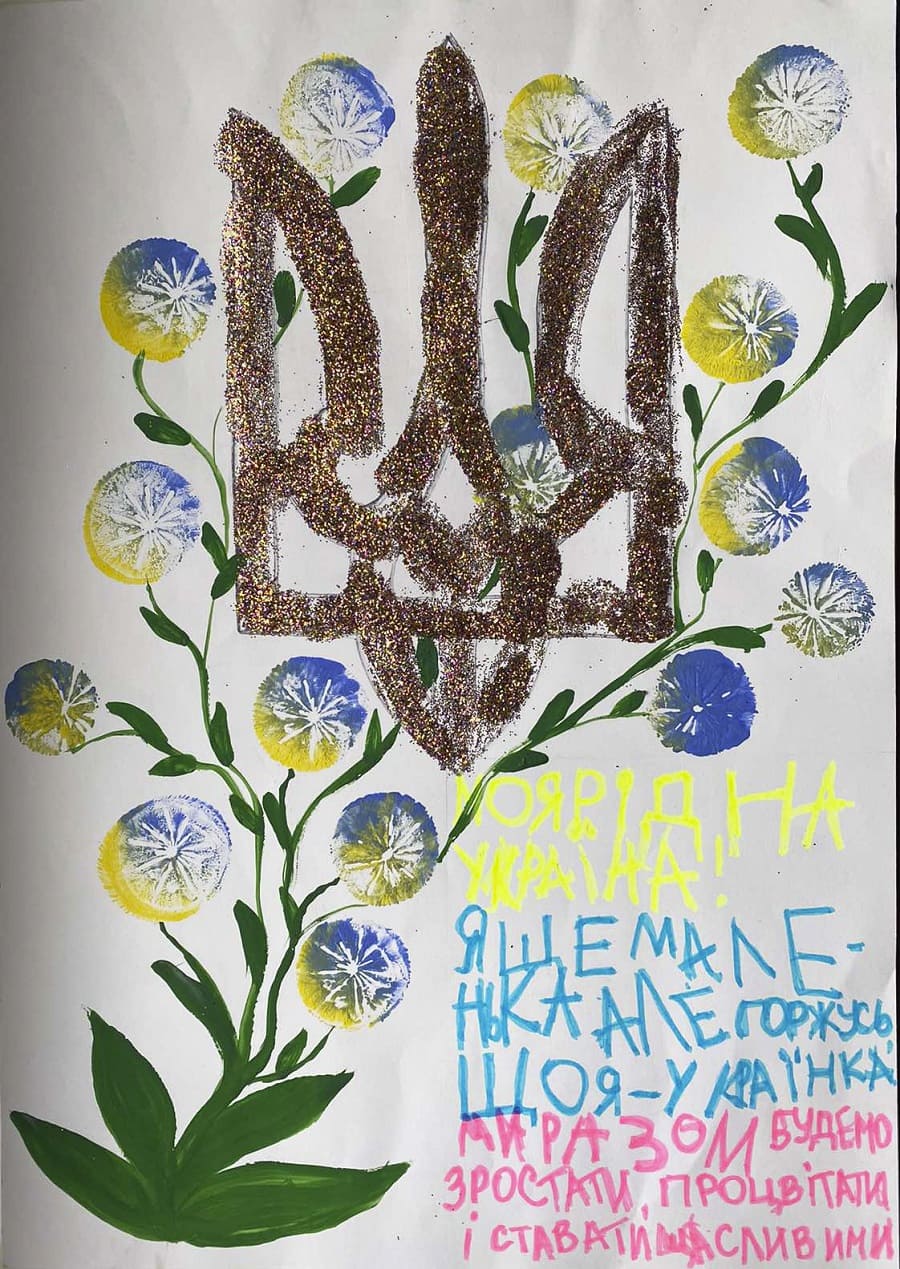 МОЯ РІДНА
УКРАЇНА!
Я ЩЕ МАЛЕ-
НЬКА АЛЕ ГОРЖУСЬ,
ЩО Я-УКРАЇНКА
МИ РАЗОМ БУДЕМО
ЗРОСТАТИ, ПРОЦВІТАТИ
І СТАВАТИ ЩАСЛИВИМИ